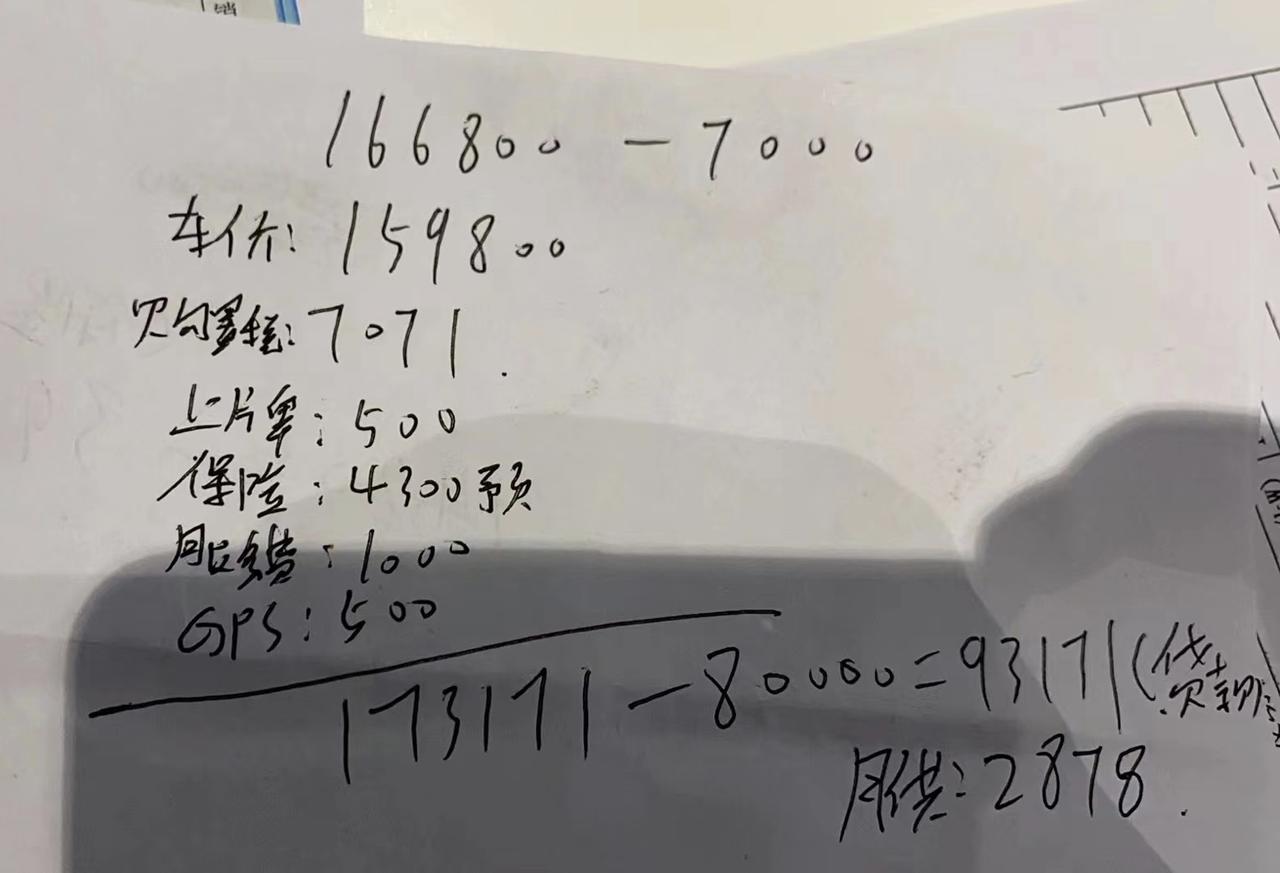 销
166800-7000
车价:159800
购置税:7071.
上片单:500
保险:4300预
服务费:1000
GPS:500
173171-80000=93171(贷款
月供:2878.